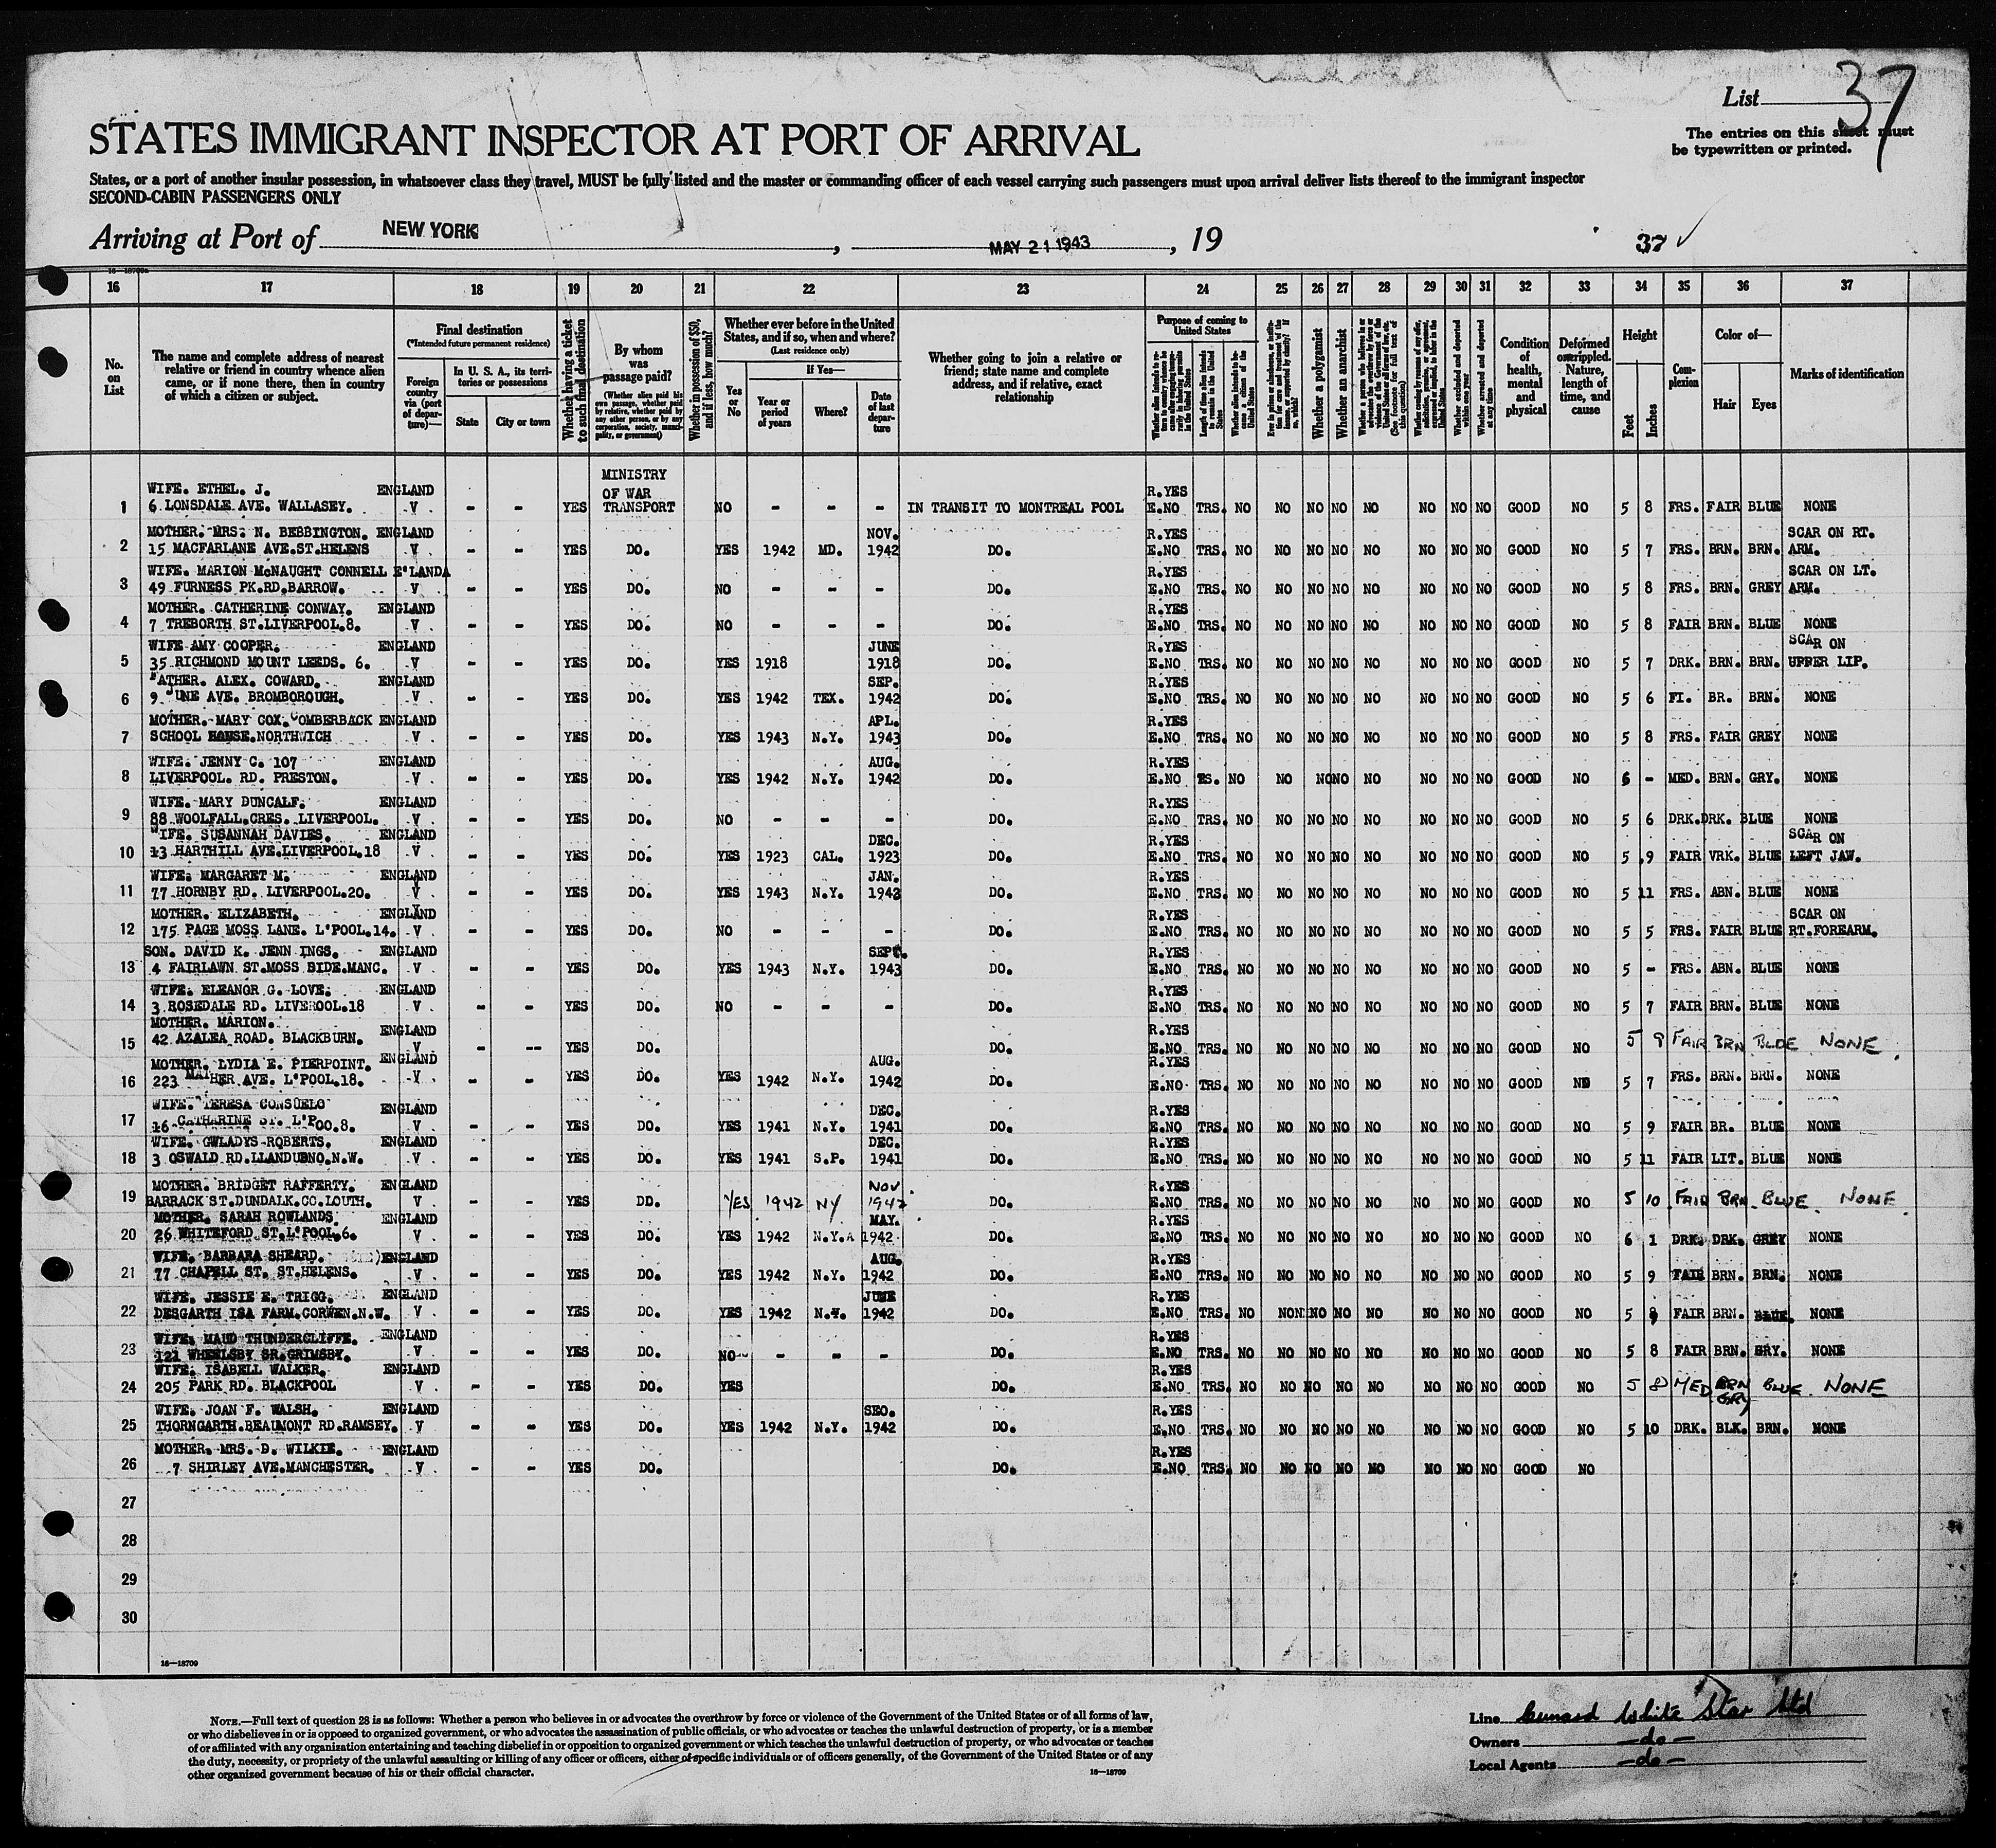 List 37
The entries on this sheet must
be typewritten or printed.
STATES IMMIGRANT INSPECTOR AT PORT OF ARRIVAL
States, or a port of another insular possession, in whatsoever class they travel, MUST be fully listed and the master or commanding officer of each vessel carrying such passengers must upon arrival deliver lists thereof to the immigrant inspector
SECOND-CABIN PASSENGERS ONLY
Arriving at Port of NEW YORK, MAY 21 1943, 19 37 ✓
16 17 18 19 20 21 22 23 24 25 26 27 28 29 30 31 32 33 34 35 36 37
No. on List
The name and complete address of nearest relative or friend in country whence alien came, or if none there, then in country of which a citizen or subject.
Final destination
(*Intended future permanent residence)
Foreign country via (port of departure)—
In U. S. A., its territories or possessions
State
City or town
Whether having a ticket to such final destination
By whom was passage paid?
(Whether alien paid his own passage, whether paid by relative, whether paid by any other person, or by any corporation, society, municipality, or government)
Whether in possession of $50, and if less, how much?
Whether ever before in the United States, and if so, when and where?
(Last residence only)
Yes or No
If Yes—
Year or period of years
Where?
Date of last departure
Whether going to join a relative or friend; state name and complete address, and if relative, exact relationship
Purpose of coming to United States
Length of time alien intends to remain in the United States
Whether alien intends to become a citizen of the United States
Whether a polygamist
Whether an anarchist
(See footnote for full text of this question)
Whether excluded and deported within one year
Whether arrested and deported at any time
Condition of health, mental and physical
Deformed or crippled. Nature, length of time, and cause
Height
Feet
Inches
Complexion
Color of—
Hair
Eyes
Marks of identification
MINISTRY
WIFE. ETHEL. J. ENGLAND OF WAR R.YES
1 6 LONSDALE AVE. WALLASEY. V - - YES TRANSPORT NO - - - IN TRANSIT TO MONTREAL POOL E.NO TRS. NO NO NO NO NO NO NO NO GOOD NO 5 8 FRS. FAIR BLUE NONE
MOTHER. MRS. N. BEBBINGTON. ENGLAND NOV. R.YES SCAR ON RT.
2 15 MACFARLANE AVE.ST.HELENS V - - YES DO. YES 1942 MD. 1942 DO. E.NO TRS. NO NO NO NO NO NO NO NO GOOD NO 5 7 FRS. BRN. BRN. ARM.
WIFE. MARION McNAUGHT CONNELL E'LANDA R.YES SCAR ON LT.
3 49 FURNESS PK.RD.BARROW. V - - YES DO. NO - - - DO. E.NO TRS. NO NO NO NO NO NO NO NO GOOD NO 5 8 FRS. BRN. GREY ARM.
MOTHER. CATHERINE CONWAY. ENGLAND R.YES
4 7 TREBORTH ST.LIVERPOOL.8. V - - YES DO. NO - - - DO. E.NO TRS. NO NO NO NO NO NO NO NO GOOD NO 5 8 FAIR BRN. BLUE NONE
WIFE AMY COOPER. ENGLAND JUNE R.YES SCAR ON
5 35 RICHMOND MOUNT LEEDS. 6. V - - YES DO. YES 1918 1918 DO. E.NO TRS. NO NO NO NO NO NO NO NO GOOD NO 5 7 DRK. BRN. BRN. UPPER LIP.
FATHER. ALEX. COWARD. ENGLAND SEP. R.YES
6 9 JUNE AVE. BROMBOROUGH. V - - YES DO. YES 1942 TEX. 1942 DO. E.NO TRS. NO NO NO NO NO NO NO NO GOOD NO 5 6 FI. BR. BRN. NONE
MOTHER. MARY COX. COMBERBACK ENGLAND APL. R.YES
7 SCHOOL HOUSE.NORTHWICH V - - YES DO. YES 1943 N.Y. 1943 DO. E.NO TRS. NO NO NO NO NO NO NO NO GOOD NO 5 8 FRS. FAIR GREY NONE
WIFE. JENNY C. 107 ENGLAND AUG. R.YES
8 LIVERPOOL. RD. PRESTON. V - - YES DO. YES 1942 N.Y. 1942 DO. E.NO NO NO NO NO NO NO NO NO GOOD NO 6 - MED. BRN. GRY. NONE
WIFE. MARY DUNCALF. ENGLAND R.YES
9 88 WOOLFALL.CRES. LIVERPOOL. V - - YES DO. NO - - - DO. E.NO TRS. NO NO NO NO NO NO NO NO GOOD NO 5 6 DRK. DRK. BLUE NONE
WIFE. SUSANNAH DAVIES. ENGLAND DEC. R.YES SCAR ON
10 13 HARTHILL AVE.LIVERPOOL.18 V - - YES DO. YES 1923 CAL. 1923 DO. E.NO TRS. NO NO NO NO NO NO NO NO GOOD NO 5 9 FAIR VRK. BLUE LEFT JAW.
WIFE. MARGARET M. ENGLAND JAN. R.YES
11 77 HORNBY RD. LIVERPOOL.20. V - - YES DO. YES 1943 N.Y. 1943 DO. E.NO TRS. NO NO NO NO NO NO NO NO GOOD NO 5 11 FRS. ABN. BLUE NONE
MOTHER. ELIZABETH. ENGLAND R.YES SCAR ON
12 175 PAGE MOSS LANE. L'POOL.14. V - - YES DO. NO - - - DO. E.NO TRS. NO NO NO NO NO NO NO NO GOOD NO 5 5 FRS. FAIR BLUE RT.FOREARM.
SON. DAVID K. JENN INGS. ENGLAND SEPT. R.YES
13 4 FAIRLAWN ST.MOSS SIDE.MANC. V - - YES DO. YES 1943 N.Y. 1943 DO. E.NO TRS. NO NO NO NO NO NO NO NO GOOD NO 5 - FRS. ABN. BLUE NONE
WIFE. ELEANOR G. LOVE. ENGLAND R.YES
14 3 ROSEDALE RD. LIVEROOL.18 V - - YES DO. NO - - - DO. E.NO TRS. NO NO NO NO NO NO NO NO GOOD NO 5 7 FAIR BRN. BLUE NONE
MOTHER. MARION. ENGLAND R.YES
15 42 AZALEA ROAD. BLACKBURN. V - -- YES DO. DO. E.NO TRS. NO NO NO NO NO NO NO NO GOOD NO 5 9 FAIR BRN BLUE NONE
MOTHER. LYDIA E. PIERPOINT. ENGLAND AUG. R.YES
16 223 MATHER AVE. L'POOL.18. V - - YES DO. YES 1942 N.Y. 1942 DO. E.NO TRS. NO NO NO NO NO NO NO NO GOOD NO 5 7 FRS. BRN. BRN. NONE
WIFE. TERESA CONSUELO ENGLAND DEC. R.YES
17 16 CATHARINE ST. L'POO.8. V - - YES DO. YES 1941 N.Y. 1941 DO. E.NO TRS. NO NO NO NO NO NO NO NO GOOD NO 5 9 FAIR BR. BLUE NONE
WIFE. GWLADYS ROBERTS. ENGLAND DEC. R.YES
18 3 OSWALD RD.LLANDUDNO.N.W. V - - YES DO. YES 1941 S.P. 1941 DO. E.NO TRS. NO NO NO NO NO NO NO NO GOOD NO 5 11 FAIR LIT. BLUE NONE
MOTHER. BRIDGET RAFFERTY. ENGLAND NOV R.YES
19 BARRACK ST.DUNDALK.CO.LOUTH. V - - YES DD. YES 1942 NY 1942 DO. E.NO TRS. NO NO NO NO NO NO NO NO GOOD NO 5 10 FAIR BRN BLUE NONE
MOTHER. SARAH ROWLANDS. ENGLAND MAY. R.YES
20 26 WHITEFORD ST.L'POOL.6. V - - YES DO. YES 1942 N.Y. 1942 DO. E.NO TRS. NO NO NO NO NO NO NO NO GOOD NO 6 1 DRK. DRK. GREY NONE
WIFE. BARBARA SHEARD. ENGLAND AUG. R.YES
21 77 CHAPELL ST. ST.HELENS. V - - YES DO. YES 1942 N.Y. 1942 DO. E.NO TRS. NO NO NO NO NO NO NO NO GOOD NO 5 9 FAIR BRN. BRN. NONE
WIFE. JESSIE E. TRIGG. ENGLAND JUNE R.YES
22 DESGARTH ISA FARM.CORWEN.N.W. V - - YES DO. YES 1942 N.Y. 1942 DO. E.NO TRS. NO NO NO NO NO NO NO NO GOOD NO 5 FAIR BRN. BLUE. NONE
WIFE. MAUD THUNDERCLIFFE. ENGLAND R.YES
23 121 GRIMSBY. V - - YES DO. NO - - - DO. E.NO TRS. NO NO NO NO NO NO NO NO GOOD NO 5 8 FAIR BRN. GRY. NONE
WIFE. ISABELL WALKER. ENGLAND R.YES
24 205 PARK RD. BLACKPOOL V - - YES DO. YES DO. E.NO TRS. NO NO NO NO NO NO NO NO GOOD NO 5 8 MED BRN GRY BLUE NONE
WIFE. JOAN F. WALSH. ENGLAND SEO. R.YES
25 THORNGARTH.BEAUMONT RD.RAMSEY. V - - YES DO. YES 1942 N.Y. 1942 DO. E.NO TRS. NO NO NO NO NO NO NO NO GOOD NO 5 10 DRK. BLK. BRN. NONE
MOTHER. MRS. D. WILKIE. ENGLAND R.YES
26 7 SHIRLEY AVE.MANCHESTER. V - - YES DO. DO. E.NO TRS. NO NO NO NO NO NO NO NO GOOD NO
27
28
29
30
16—18709
NOTE.—Full text of question 28 is as follows: Whether a person who believes in or advocates the overthrow by force or violence of the Government of the United States or of all forms of law,
or who disbelieves in or is opposed to organized government, or who advocates the assassination of public officials, or who advocates or teaches the unlawful destruction of property, or is a member
of or affiliated with any organization entertaining and teaching disbelief in or opposition to organized government or which teaches the unlawful destruction of property, or who advocates or teaches
the duty, necessity, or propriety of the unlawful assaulting or killing of any officer or officers, either of specific individuals or of officers generally, of the Government of the United States or of any
other organized government because of his or their official character.
16—18709
Line Cunard White Star Ltd
Owners —do—
Local Agents —do—